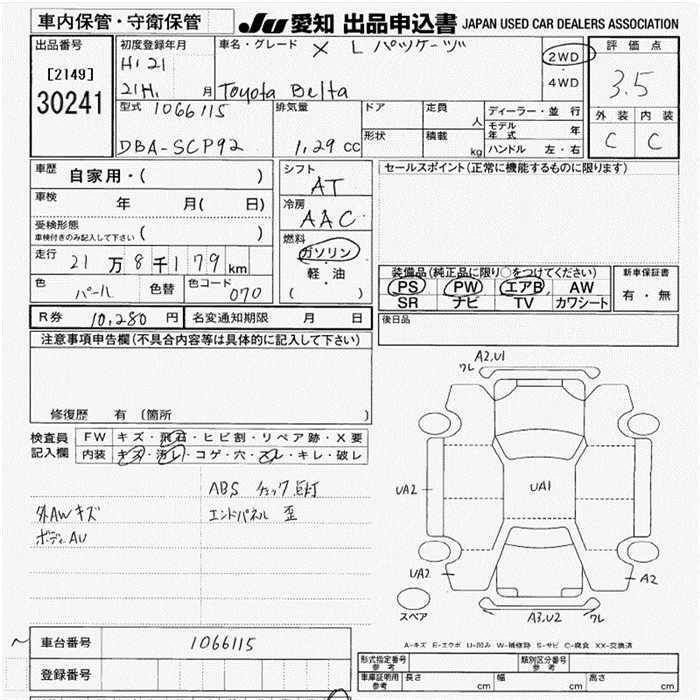 車内保管・守衛保管
JU 愛知 出品申込書 JAPAN USED CAR DEALERS ASSOCIATION
出品番号
[2149]
30241
初度登録年月
H121
21H1 月
車名・グレード X Lパッケージ
Toyota Belta
2WD
・
4WD
評価点
3.5
外装 内装
C C
型式 1066115
DBA-SCP92
排気量
1.29 CC
ドア
形状
定員
人
積載
kg
ディーラー・並行
モデル年式 年
ハンドル 左・右
車歴
自家用・( )
車検
年 月( 日)
受検形態
車検付きのみ記入して下さい ( )
走行
21万8千179km
色
パール
色替
色コード
070
シフト
AT
冷房
AAC
燃料
ガソリン
・
軽・油
( )
セールスポイント(正常に機能するものに限ります)
装備品(純正品に限り○をつけてください)
PS PW エアB AW
SR ナビ TV カワシート
新車保証書
有・無
R券 10,280 円
名変通知期限 月 日
後日品
注意事項申告欄(不具合内容等は具体的に記入して下さい)
修復歴 有 (箇所 )
検査員
記入欄
FW キズ・飛石・ヒビ割・リペア跡・X要
内装 キズ・汚レ・コゲ・穴・スレ・キレ・破レ
ABS チェック点灯
外AWキズ エンドパネル 歪
ボディAU
A2,U1
ワレ
UA2
UA1
UA2
A2
スペア
A3,U2
ワレ
A-キズ E-エクボ U-凹み W-補修跡 S-サビ C-腐食 XX-交換済
~ 車台番号 1066115
登録番号
形式指定番号
参考
類別区分番号
参考
車庫証明用
参考
長さ cm
幅 cm
高さ cm